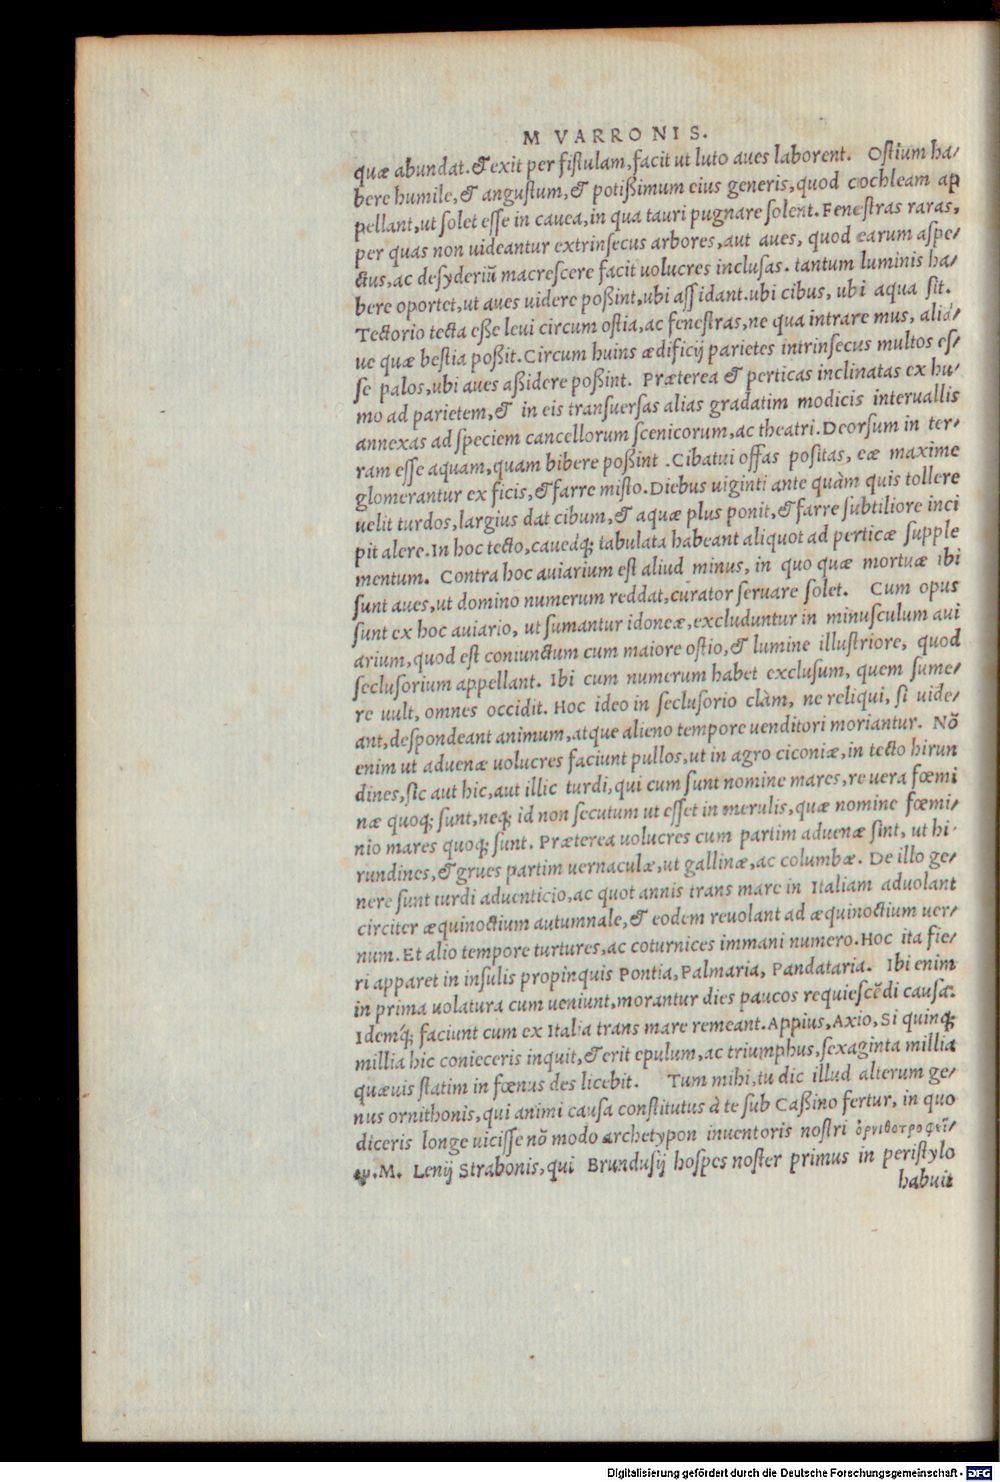 M VARRONIS.
quæ abundat.& exit per fistulam,facit ut luto aues laborent. Ostium ha/
bere humile,& angustum,& potißimum eius generis,quod cochleam ap
pellant,ut solet esse in cauea,in qua tauri pugnare solent.Fenestras raras,
per quas non uideantur extrinsecus arbores,aut aues, quod earum aspe/
ctus,ac desyderiū macrescere facit uolucres inclusas. tantum luminis ha/
bere oportet,ut aues uidere poßint,ubi assidant.ubi cibus, ubi aqua sit.
Tectorio tecta eße leui circum ostia,ac fenestras,ne qua intrare mus, aliá/
ue quæ bestia poßit.Circum huius ædificij parietes intrinsecus multos es/
se palos,ubi aues aßidere poßint. Præterea & perticas inclinatas ex hu/
mo ad parietem,& in eis transuersas alias gradatim modicis interuallis
annexas ad speciem cancellorum scenicorum,ac theatri.Deorsum in ter/
ram esse aquam,quam bibere poßint .Cibatui offas positas, eæ maxime
glomerantur ex ficis,& farre misto.Diebus uiginti ante quàm quis tollere
uelit turdos,largius dat cibum,& aquæ plus ponit,& farre subtiliore inci
pit alere.In hoc tecto,caueáq; tabulata habeant aliquot ad perticæ supple
mentum. Contra hoc auiarium est aliud minus, in quo quæ mortuæ ibi
sunt aues,ut domino numerum reddat,curator seruare solet. Cum opus
sunt ex hoc auiario, ut sumantur idoneæ,excluduntur in minusculum aui
arium,quod est coniunctum cum maiore ostio,& lumine illustriore, quod
seclusorium appellant. Ibi cum numerum habet exclusum, quem sume/
re uult, omnes occidit. Hoc ideo in seclusorio clàm, ne reliqui, si uide/
ant,despondeant animum,atque alieno tempore uenditori moriantur. Nō
enim ut aduenæ uolucres faciunt pullos,ut in agro ciconiæ,in tecto hirun
dines,sic aut hic,aut illic turdi,qui cum sunt nomine mares,re uera fœmi
næ quoq; sunt,neq; id non secutum ut esset in merulis,quæ nomine fœmi/
nio mares quoq; sunt. Præterea uolucres cum partim aduenæ sint, ut hi/
rundines,& grues partim uernaculæ,ut gallinæ,ac columbæ. De illo ge/
nere sunt turdi aduenticio,ac quot annis trans mare in Italiam aduolant
circiter æquinoctium autumnale,& eodem reuolant ad æquinoctium uer/
num.Et alio tempore turtures,ac coturnices immani numero.Hoc ita fie/
ri apparet in insulis propinquis Pontia,Palmaria, Pandataria. Ibi enim
in prima uolatura cum ueniunt,morantur dies paucos requiescēdi causa:
Idemq́; faciunt cum ex Italia trans mare remeant.Appius,Axio,Si quinq;
millia hic conieceris inquit,& erit epulum,ac triumphus,sexaginta millia
quæuis statim in fœnus des licebit. Tum mihi,tu dic illud alterum ge/
nus ornithonis,qui animi causa constitutus à te sub Caßino fertur, in quo
diceris longe uicisse nō modo archetypon inuentoris nostri ὀρνιθοτροφεῖ/
ου.M. Lenij Strabonis,qui Brundusij hospes noster primus in peristylo
habuit
Digitalisierung gefördert durch die Deutsche Forschungsgemeinschaft - DFG